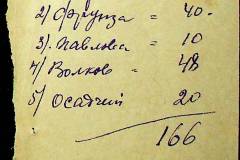 2) Фрунза = 40.
3). Павлова = 10
4) Волков = 48
5) Осадчий 20
166